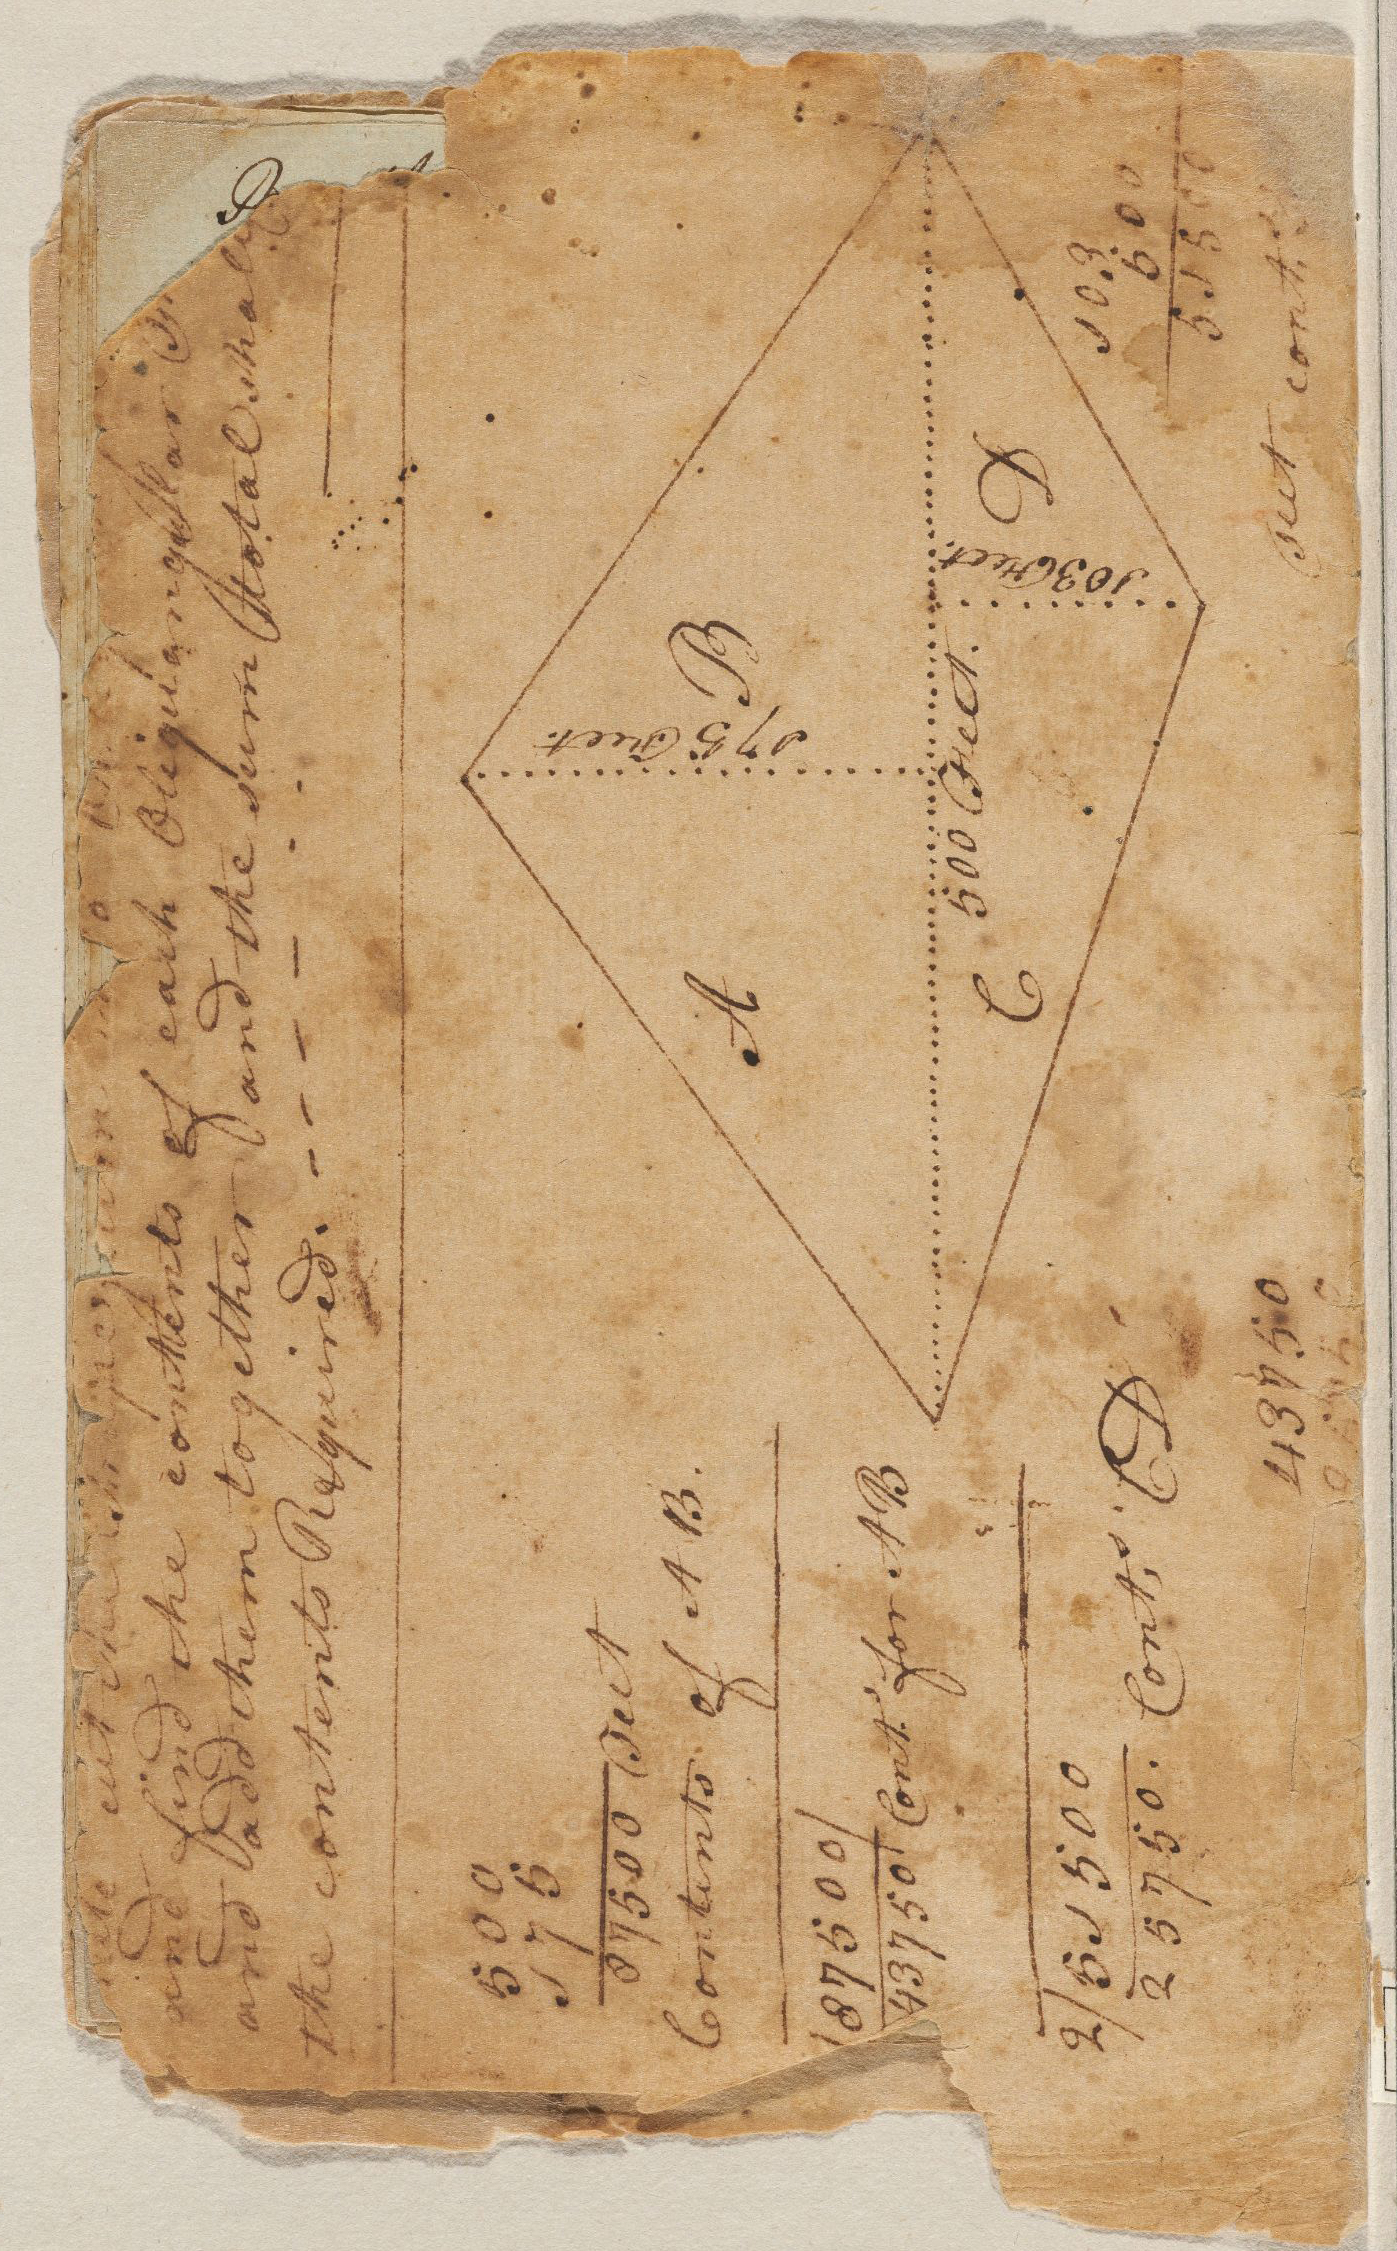 cut the
and find the contents of each Oliquiangullar
and add them together and the sum Total shall
the contents Required. - - - - - -
500
175
87500 Feet
Contents of A B.
87500
43750 Cont. for A B
2/51500
25750. Cont,s C D
A
B
C
D
175 Feet.
500 Feet.
103 Feet.
103
500
51500
Feet cont.
43750